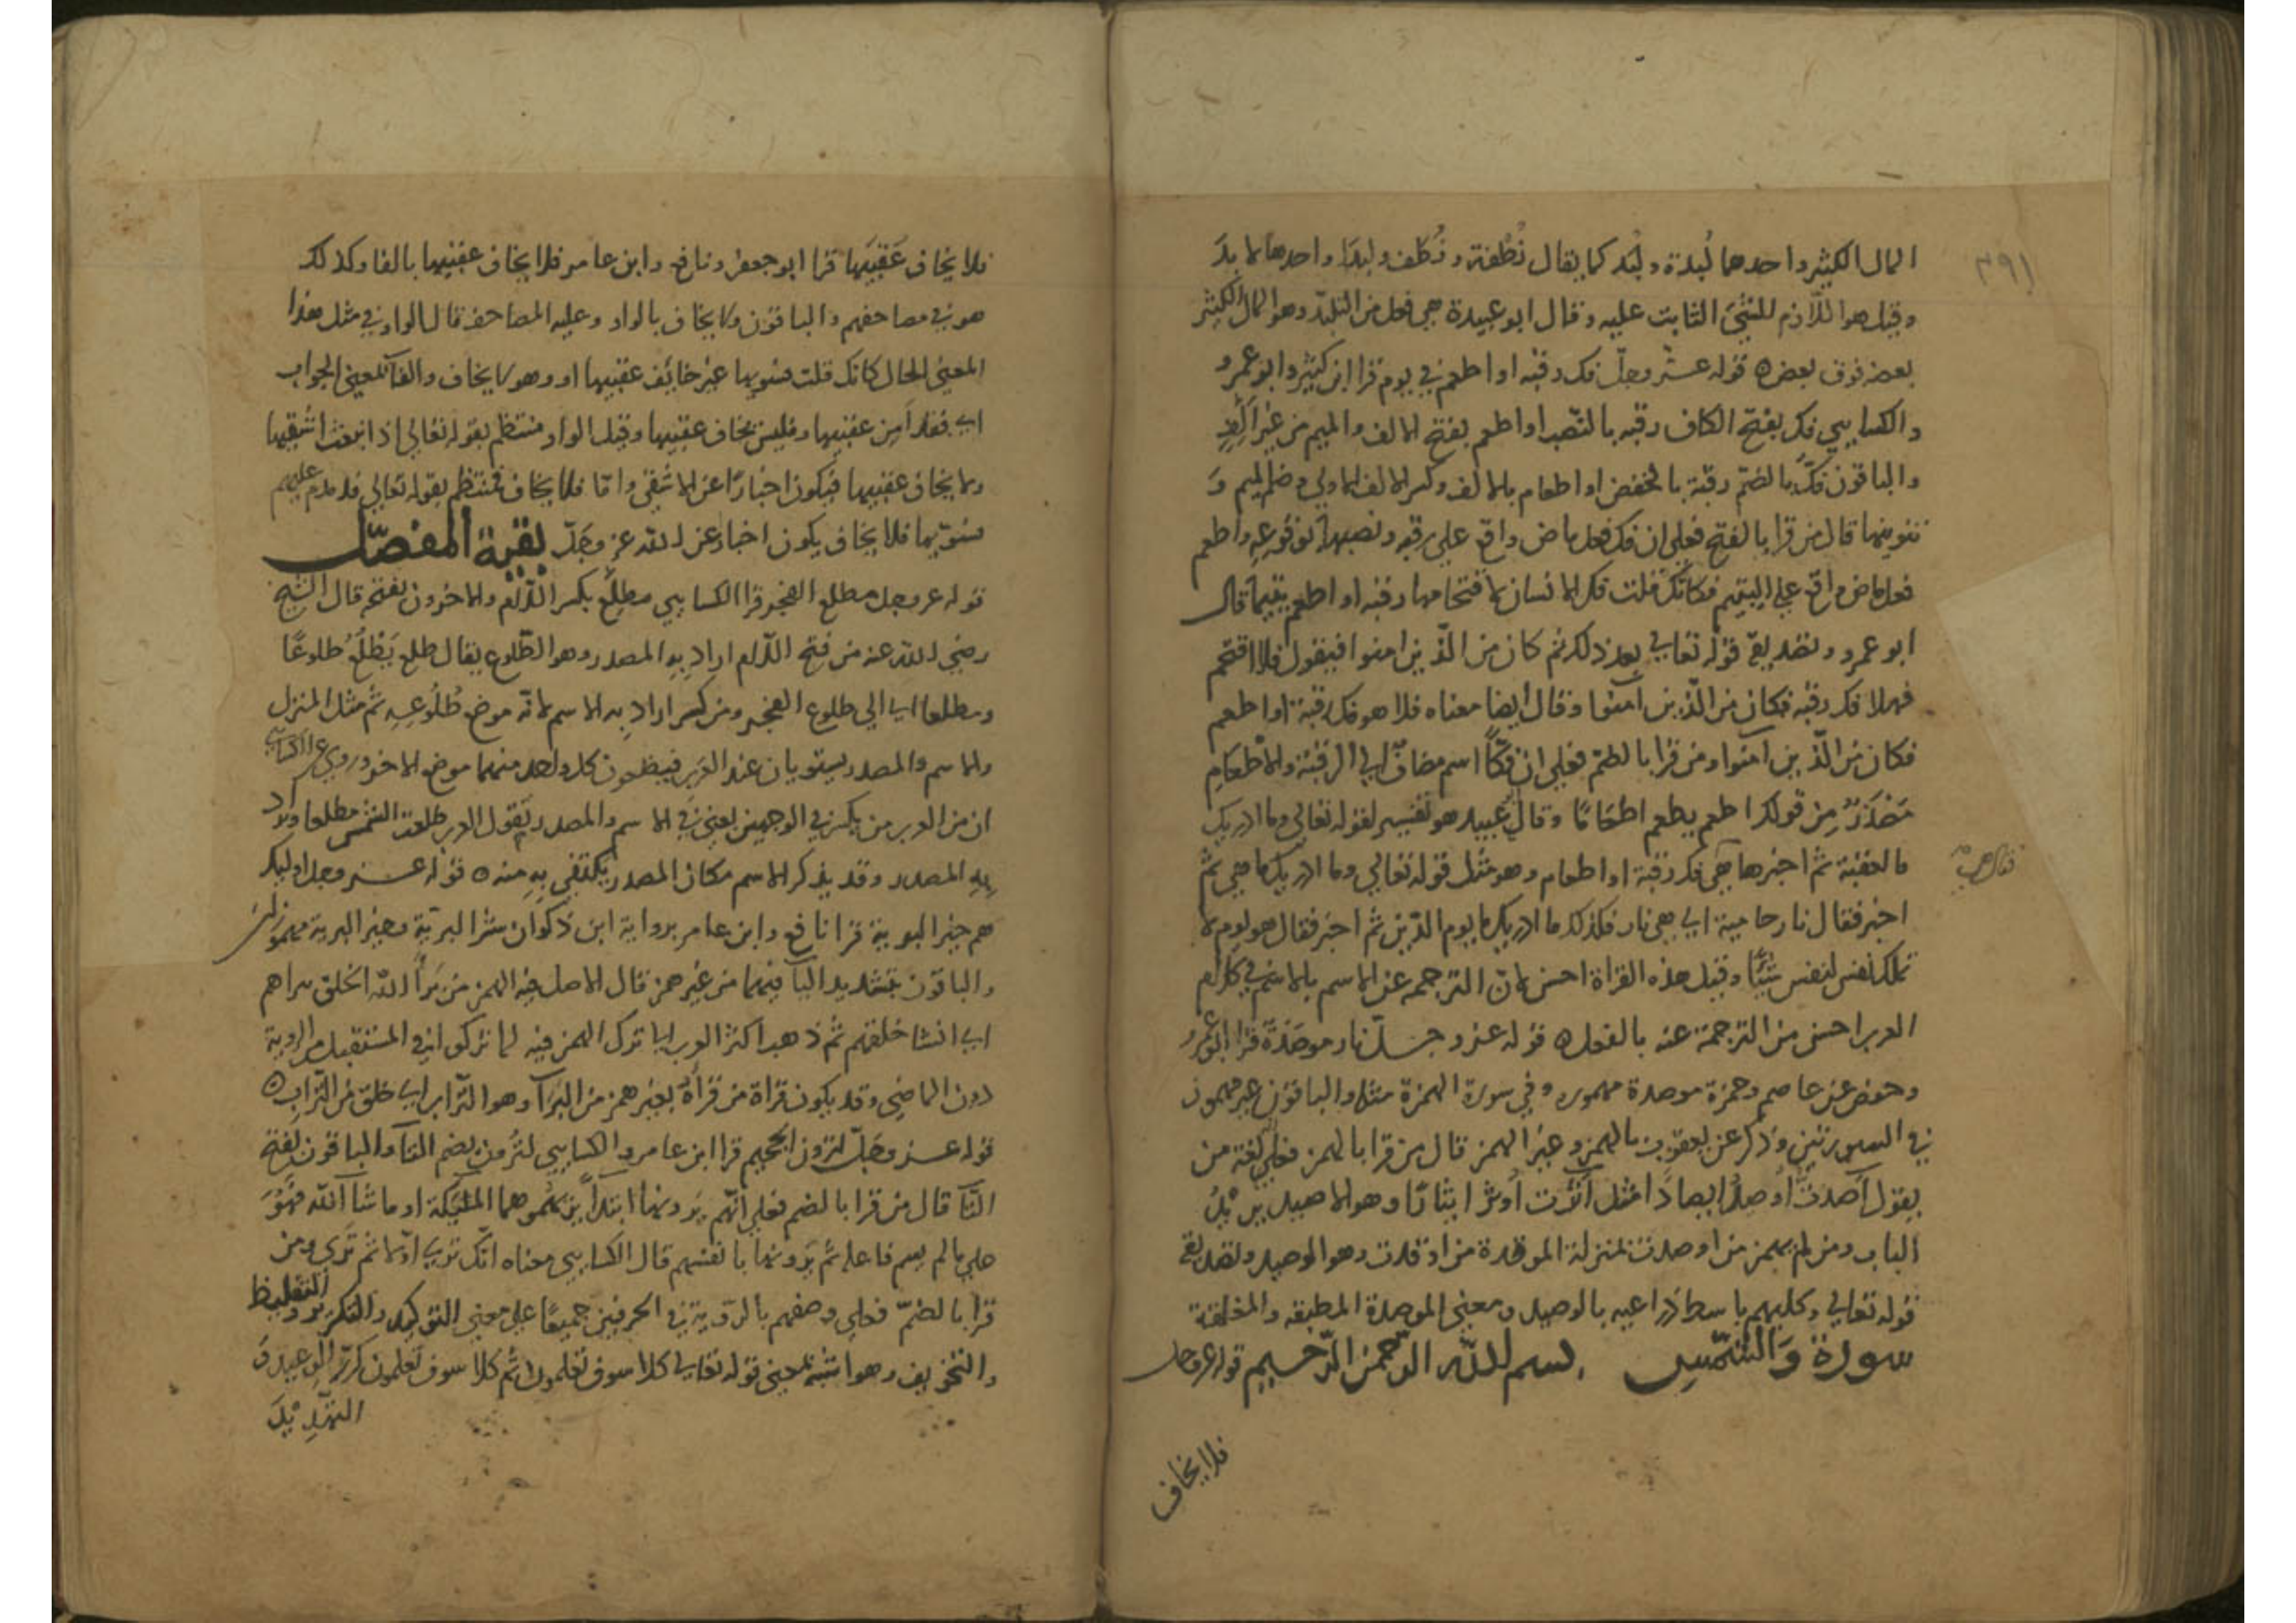 ٢٩١
المال الكثير واحدهما لُبدة ولُبَد كما يقال نُطْفة ونُطَف ولِبَدًا واحدها لابد
وقيل هو اللازم للشئ الثابت عليه وقال ابو عبيدة هي فعل من التلبّد وهو المال الكثير
بعضه فوق بعض ه قوله عزّ وجلّ فك رقبه او اطعم في يوم قرا ابن كثير وابو عمرو
والكسايي فك بفتح الكاف رقبه بالنّصب او اطعم بفتح الالف والميم من غير الف
والباقون فكُّ بالضمّ رقبة بالخفض او اطعام بالالف وكسر الالف الاولي وضم الميم و
تنوينها قال من قرا بالفتح فعلي ان فك فعل ماض واقع علي رقبه ونصبها لوقوعه واطعم
فعل ماض واقع علي اليتيم فكانّك قلت فك الانسان لاقتحامها رقبه او اطعم يتيما قال
ابو عمرو وتصديق قوله تعالي بعد ذلك ثم كان من الّذين امنوا فيقول فلا اقتحم
فهلا فك رقبه فكان من الّذين امنوا وقال ايضا معناه فلا هو فك رقبة او اطعم
فكان من الّذين امنوا ومن قرا بالضمّ فعلي انّ فكًّا اسم مضاف الي الرقبة والاطعام
مصدرٌ من قولك اطعم يطعم اطعامًا وقال عبيد هو تفسير لقوله تعالي وما ادريك
ما العقبة ثم اخبرها هي فك رقبة او اطعام وهو مثل قوله تعالي وما ادريك ما هي ثم
اخبر فقال نار حامية اي هي نار فكذلك ما ادريك ما يوم الدّين ثم اخبر فقال هو يوم لا
تملك نفس لنفس شيئًا وقيل هذه القراة احسن لانّ الترجمه عن الاسم بالاسم في كلام
العرب احسن من الترجمة عنه بالفعل ه قوله عز وجلّ نار موصدة قرا ابو عمرو
وحفص عن عاصم وحمزة موصدة مهموزه وفي سورة الهمزة مثله والباقون غير مهموز
في السورتين وذكر عن يعقوب بالهمز وغير الهمز قال من قرا بالهمز فعلي لغة من
يقول آصدتُ أوصد ايصادًا مثل آثرت أوثر ايثارًا وهو الاصيد يريد
الباب ومن لم يهمز من اوصدت بمنزلة الموقدة من اوقدت وهو الوصيد وتصديق
قوله تعالي وكلبهم باسط ذراعيه بالوصيد ومعني الموصدة المطبقه والمغلقة
سورة والشّمس بسم الله الرّحمن الرّحيم قوله عز وجل
فلا يخاف
فلا يخاف عَقبيَها قرا ابو جعفر ونافع وابن عامر فلا يخاف عقبيها بالفا وكذلك
هو في مصاحفهم والباقون ولا يخاف بالواو وعليه المصاحف قال الواو في مثل هذا
المعني الحال كانك قلت فسويها غير خائف عقبيها او وهو لا يخاف والفا لمعني الجواب
اي فقد اَمِن عقبيها وفليس يخاف عقبيها وقيل الواو منتظم بقوله تعالي اذ انبعث اشقيها
ولا يخاف عقبيها فيكون اخبارًا عن الاشقي وامّا فلا يخاف فمنتظم بقوله تعالي فدمدم عليهم
فسوّيها فلا يخاف يكون اخبار عن الله عز وجَلّ بقية المفصّل
قوله عز وجل مطلع الفجر قرا الكسايي مطلِع بكسر اللّام والاخرون بفتحه قال الشيخ
رضي الله عنه من فتح اللّام اراد به المصدر وهو الطّلوع يقال طلع يَطْلُعُ طلوعًا
ومطلعا اي الي طلوع الفجر ومن كسر اراد به الاسم لانّه موضع طُلُوعه ثم مثل المنزل
والاسم والمصدر يستويان عند العرب فيضعون كل واحد منهما موضع الاخر وروي عن الكسايي
ان من العرب من يكسر في الوجهين يعني في الاسم والمصدر تقول العرب طلعت الشمس مطلعا ولا
به المصدر وقد يذكر الاسم مكان المصدر يكتفي به منه ه قوله عز وجل اوليك
هم خير البرية قرا نافع وابن عامر برواية ابن ذكوان شر البريّة وخير البرية مهموزين
والباقون بتشديد اليا فيهما من غير همز قال الاصل فيه الهمز من برأ الله الخلق يبراهم
اي انشا خلقهم ثم ذهب اكثر العرب الي ترك الهمز فيه لما تركوا في المستقبل من الروية
دون الماضي وقد يكون قراة من قرأه بغير همز من البَرَا وهو التّراب اي خلق من التّراب ه
قوله عز وجلّ لترون الجحيم قرا ابن عامر والكسايي لتُرون بضم التا والباقون بفتح
التا قال من قرا بالضم فعلي انّهم يرونها ابتدأ يريهموهما المليكة او ما شا الله فهُوَ
علي ما لم يسم فاعله ثم يرونها بانفسهم قال الكسايي معناه انّك تري اوّلا ثم تَري ومن
قرا بالضمّ فعلي وصفهم بالرّوية في الحرفين جميعًا علي معني التوكيد والتكرير والتغليظ
والتخويف وهو اشبه بمعني قوله تعالي كلا سوف تعلمون ثم كلا سوف تعلمون كرّر الوعيد و
التهديد